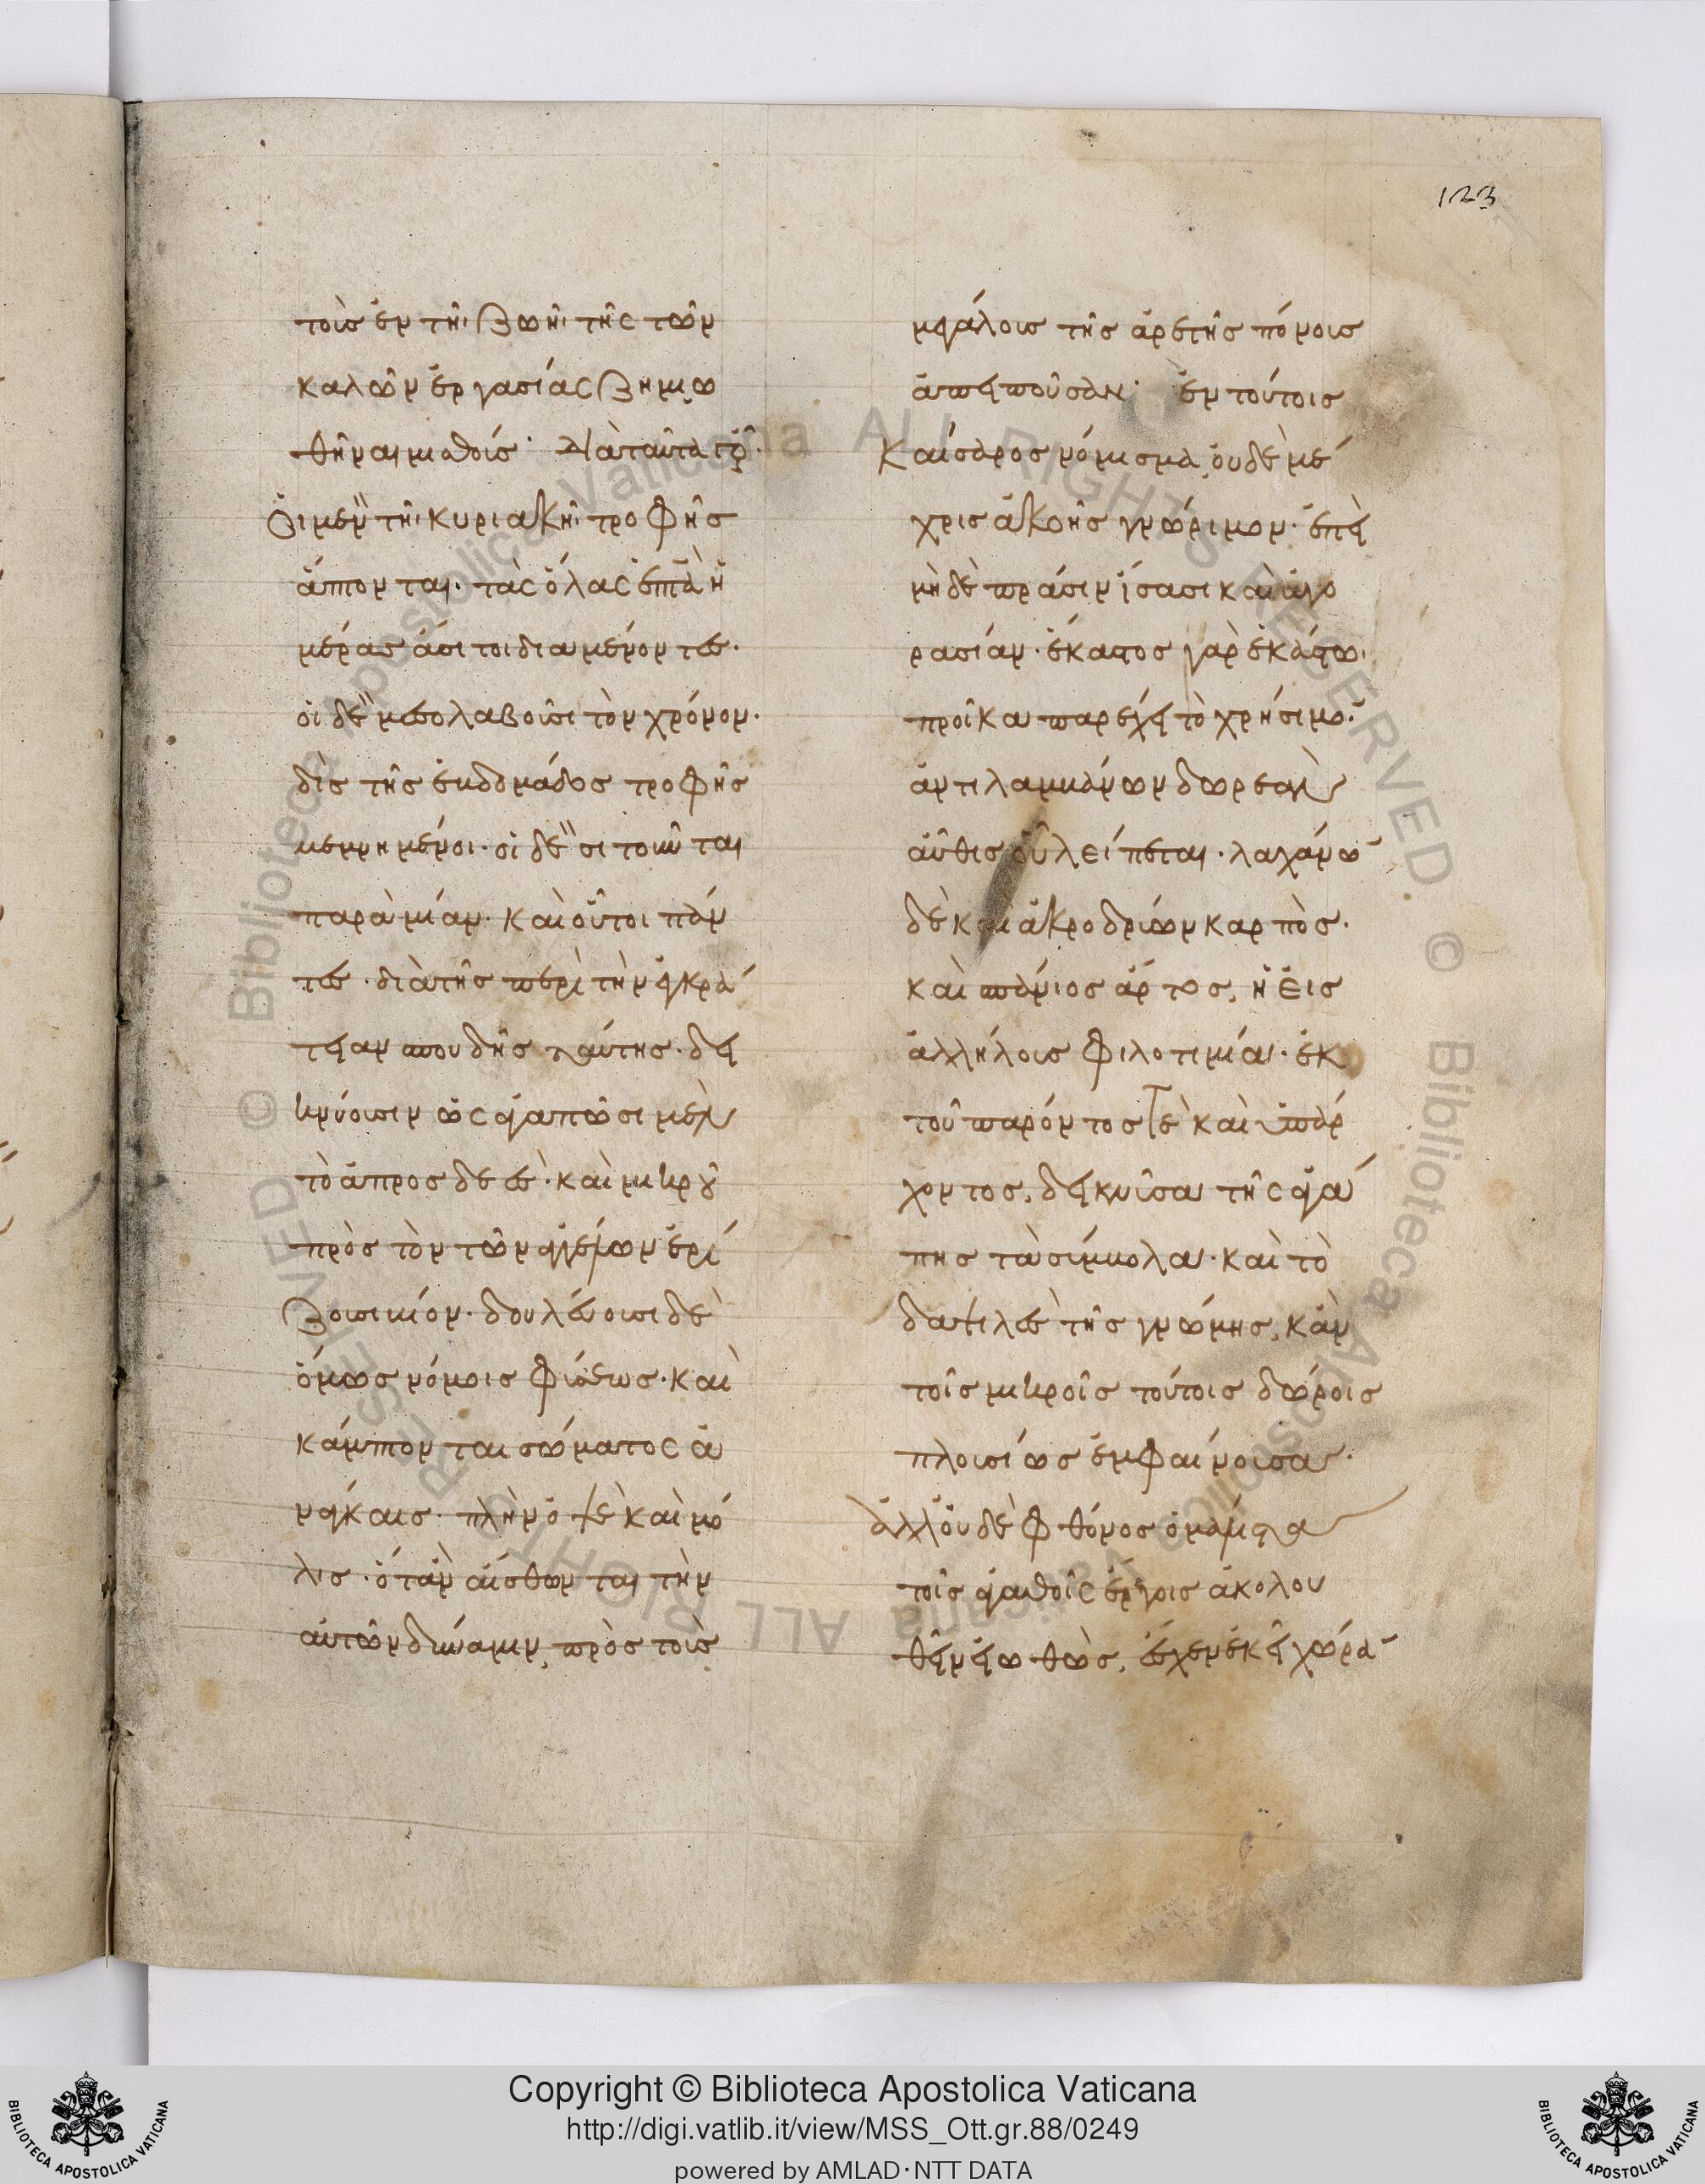 123
τοὺς ἐν τῆι ζωῆι τῆς τῶν
καλῶν ἐργασίας ζημιω
θῆναι μισθούς· διὰ ταῦτα τοι
Οἱ μὲν τῆι κυριακῆι τροφῆς
ἅπτονται· τὰς ὅλας ἑπτὰ ἡ
μέρας ἄσιτοι διαμένοντες·
οἱ δὲ μεσολαβοῦσι τὸν χρόνον·
δὶς τῆς ἑβδομάδος τροφῆς
μεμνημένοι· οἱ δὲ σιτοῦνται
παρὰ μίαν· καὶ οὗτοι πάν
τες· διὰ τῆς περὶ τὴν ἐγκρά
τειαν σπουδῆς ταύτης· δει
κνύουσιν ὡς ἀγαπῶσι μὲν
τὸ ἀπροσδεὲς· καὶ μικροῦ
πρὸς τὸν τῶν ἀγγέλων ἐρί
ζουσι βίον· δουλεύουσι δὲ
ὅμως νόμοις φύσεως· καὶ
κάμπτονται σώματος ἀ
νάγκαις· πλὴν ὀψὲ καὶ μό
λις· ὅταν αἴσθωνται τὴν
αὐτῶν δύναμιν, πρὸς τοὺς
μεγάλους τῆς ἀρετῆς πόνους
ἀπειποῦσαν· ἐν τούτοις
Καίσαρος νόμισμα, οὐδὲ μέ
χρις ἀκοῆς γνώριμον· ἐπεὶ
μὴ δὲ πρᾶσιν ἴσασι καὶ ἀγο
ρασίαν· ἕκαστος γὰρ ἑκάστωι
προῖκα παρέχει τὸ χρήσιμον·
ἀντιλαμβάνων δωρεὰν
αὖθις οὗ λείπεται· λαχάνων
δὲ καὶ ἀκροδρύων καρπὸς·
καὶ σπάνιος ἄρτος, ἡ εἰς
ἀλλήλους φιλοτιμία· ἐκ
τοῦ παρόντος τὲ καὶ ὑπάρ
χοντος, δεικνῦσα τῆς ἀγά
πης τὰ σύμβολα· καὶ τὸ
δαψιλὲς τῆς γνώμης, κἀν
τοῖς μικροῖς τούτοις δώροις
πλουσίως ἐμφαίνουσα·
ἀλλ' οὐδὲ φθόνος ὁ μάλιστα
τοῖς ἀγαθοῖς ἔργοις ἀκολου
θεῖν εἰωθὼς, ἔσχεν ἐκεῖ χώραν
Copyright © Biblioteca Apostolica Vaticana
http://digi.vatlib.it/view/MSS_Ott.gr.88/0249
powered by AMLAD·NTT DATA